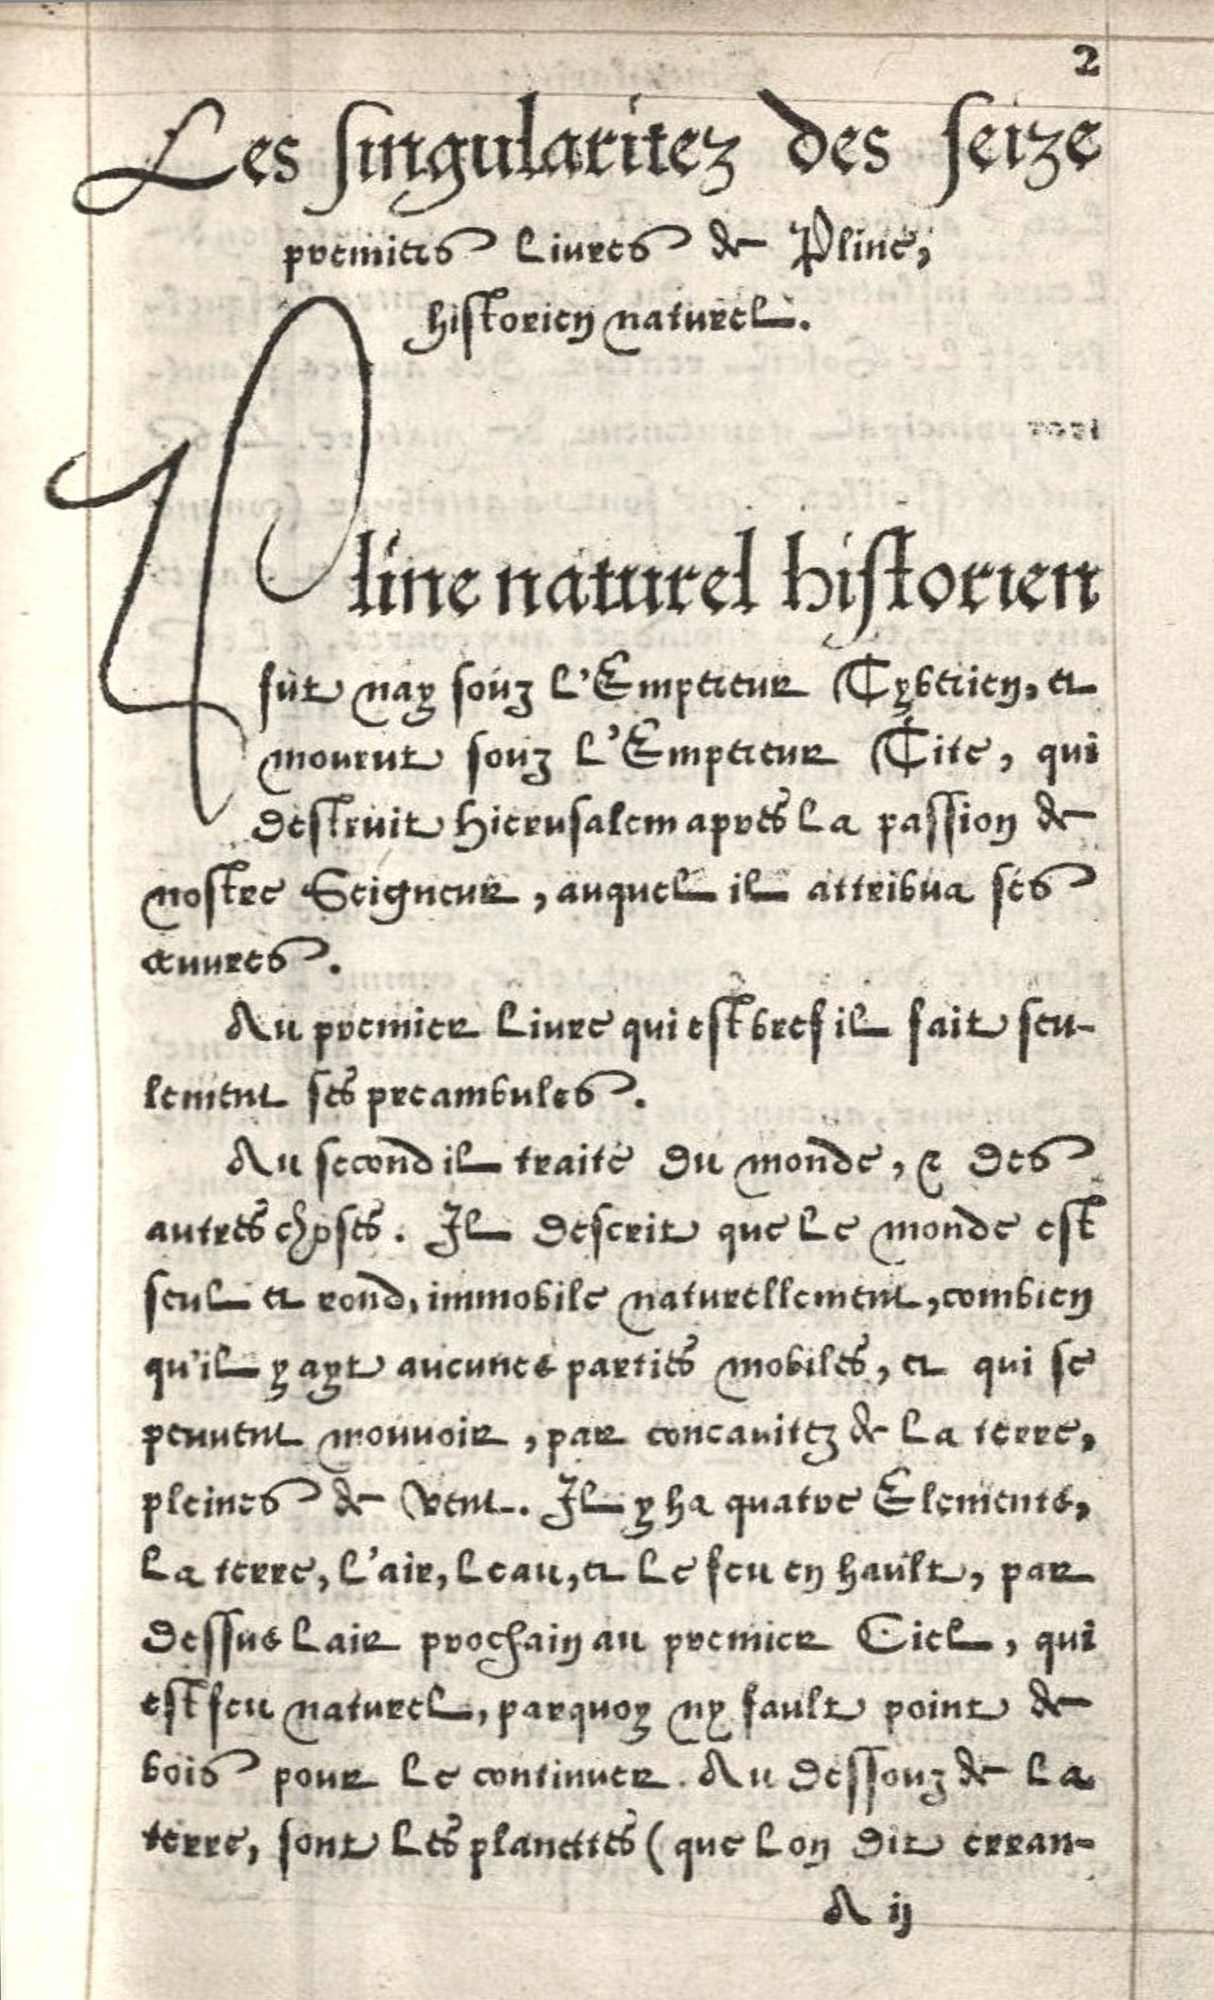 2
Les singularitez des seize
premiers livres de Pline,
historien naturel.
Pline naturel historien
fut nay souz l'Empereur Tyberien, et
mourut souz l'Empereur Tite, qui
destruit Hierusalem apres la passion de
nostre Seigneur, auquel il attribua ses
œuures.
Au premier livre qui est bref il fait seu-
lement ses preambules.
Au second il traite du monde, & des
autres choses. Il descrit que le monde est
seul et rond, immobile naturellement, combien
qu'il y ayt aucunes parties mobiles, et qui se
peuvent mouvoir, par concavitez de la terre,
pleines de vent. Il y ha quatre Elements,
la terre, l'air, leau, et le feu en hault, par
dessus lair prochain au premier Ciel, qui
est feu naturel, parquoy ny fault point de
bois pour le continuer. Au dessouz de la
terre, sont les planettes (que lon dit erran-
A ij